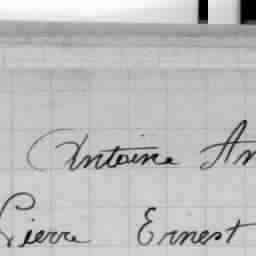 Antoine An
Pierre Ernest